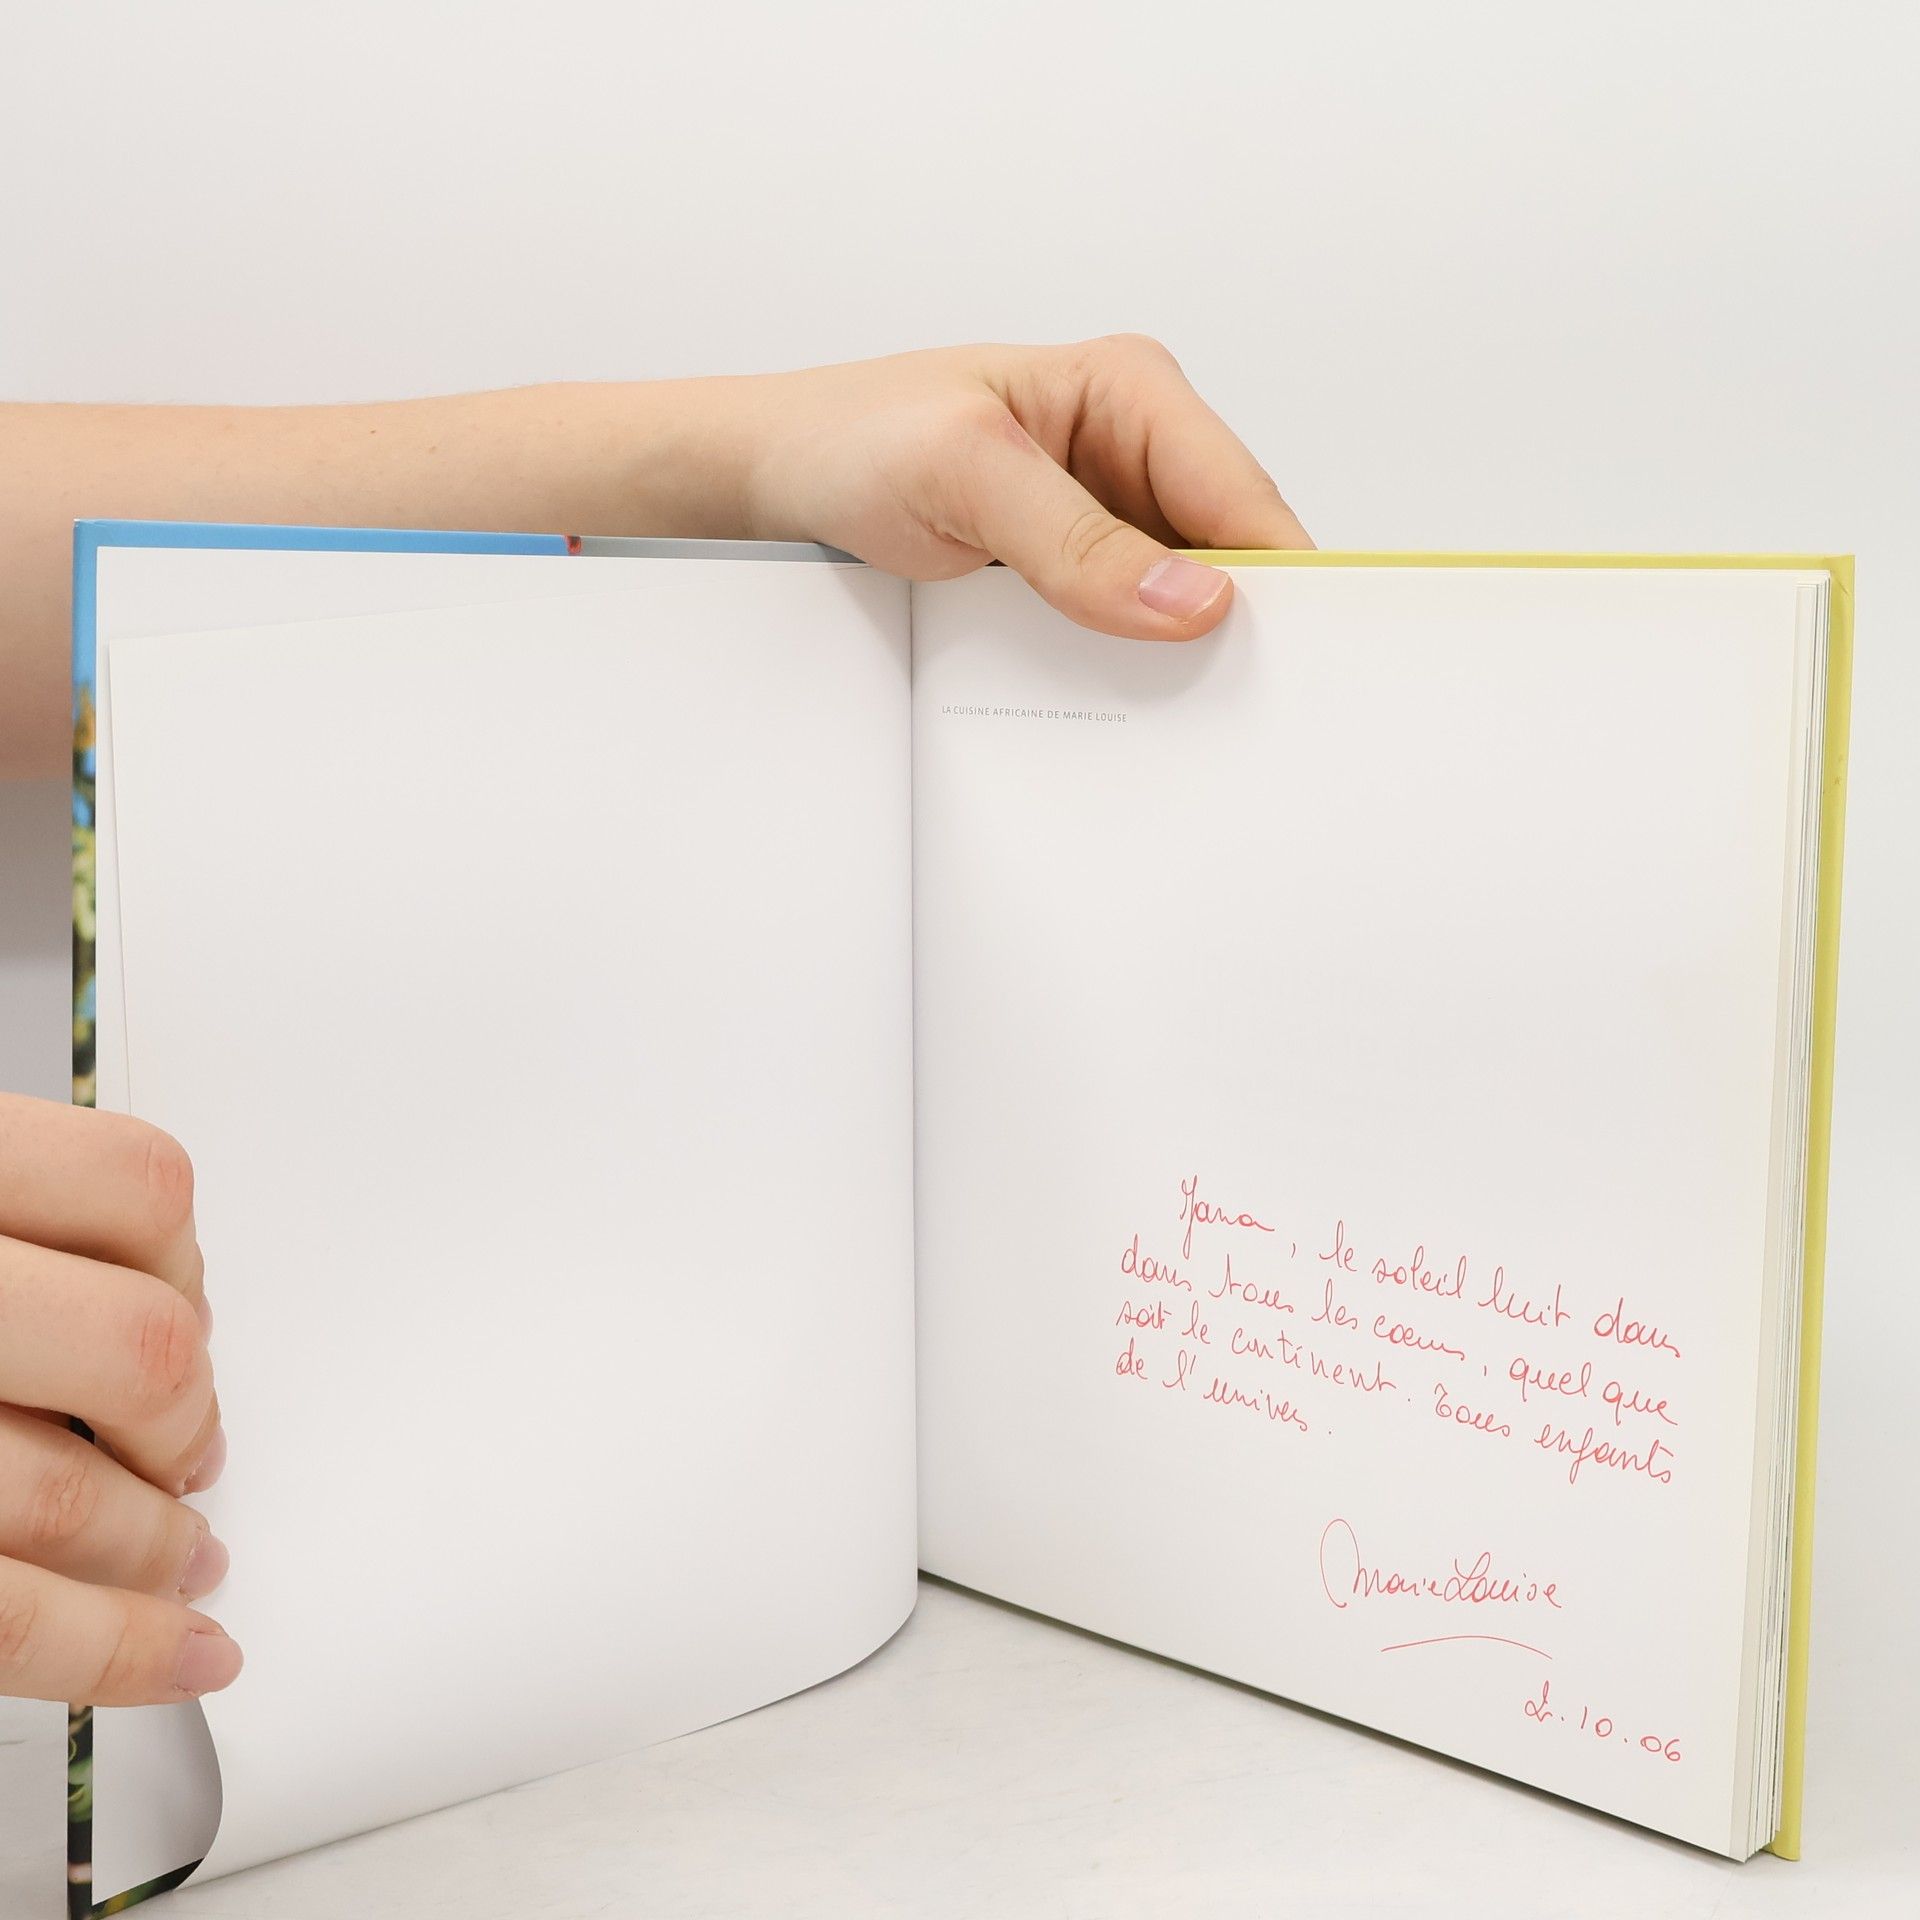 LA CUISINE AFRICAINE DE MARIE LOUISE
Yana, le soleil luit dans
dans tous les cœurs, quel que
soit le continent. Tous enfants
de l'univers.
Marie Louise
2.10.06